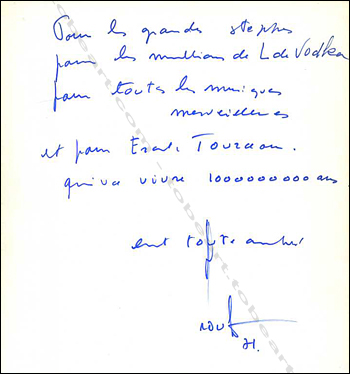 Pour les grandes steppes
pour les millions de L de Vodka
pour toutes les musiques
merveilleuses
et pour
qui va vivre 1000000000 ans
toute
71.